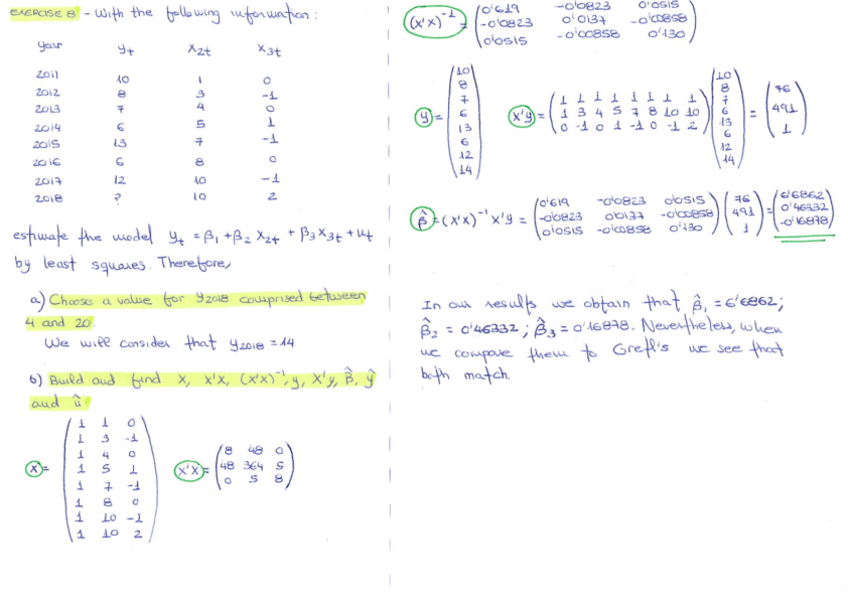 EXERCISE 8 - With the following information:
year yt x2t x3t
2011 10 1 0
2012 8 3 -1
2013 7 4 0
2014 6 5 1
2015 13 7 -1
2016 6 8 0
2017 12 10 -1
2018 ? 10 2
estimate the model yt = β1 + β2 x2t + β3 x3t + ut
by least squares. Therefore,
a) Choose a value for y2018 comprised between
4 and 20.
We will consider that y2018 = 14
b) Build and find X, X'X, (X'X)⁻¹, y, X'y, β̂, ŷ
and û
X =
1 1 0
1 3 -1
1 4 0
1 5 1
1 7 -1
1 8 0
1 10 -1
1 10 2
X'X =
8 48 0
48 364 5
0 5 8
(X'X)⁻¹ =
0'619 -0'0823 0'0515
-0'0823 0'0137 -0'00858
0'0515 -0'00858 0'130
y =
10
8
7
6
13
6
12
14
X'y =
1 1 1 1 1 1 1 1
1 3 4 5 7 8 10 10
0 -1 0 1 -1 0 -1 2
10
8
7
6
13
6
12
14
=
76
491
1
β̂ = (X'X)⁻¹ X'y =
0'619 -0'0823 0'0515
-0'0823 0'0137 -0'00858
0'0515 -0'00858 0'130
76
491
1
=
6'6862
0'46332
-0'16878
In our results we obtain that β̂1 = 6'6862;
β̂2 = 0'46332; β̂3 = 0'16878. Nevertheless, when
we compare them to Gretl's we see that
both match.